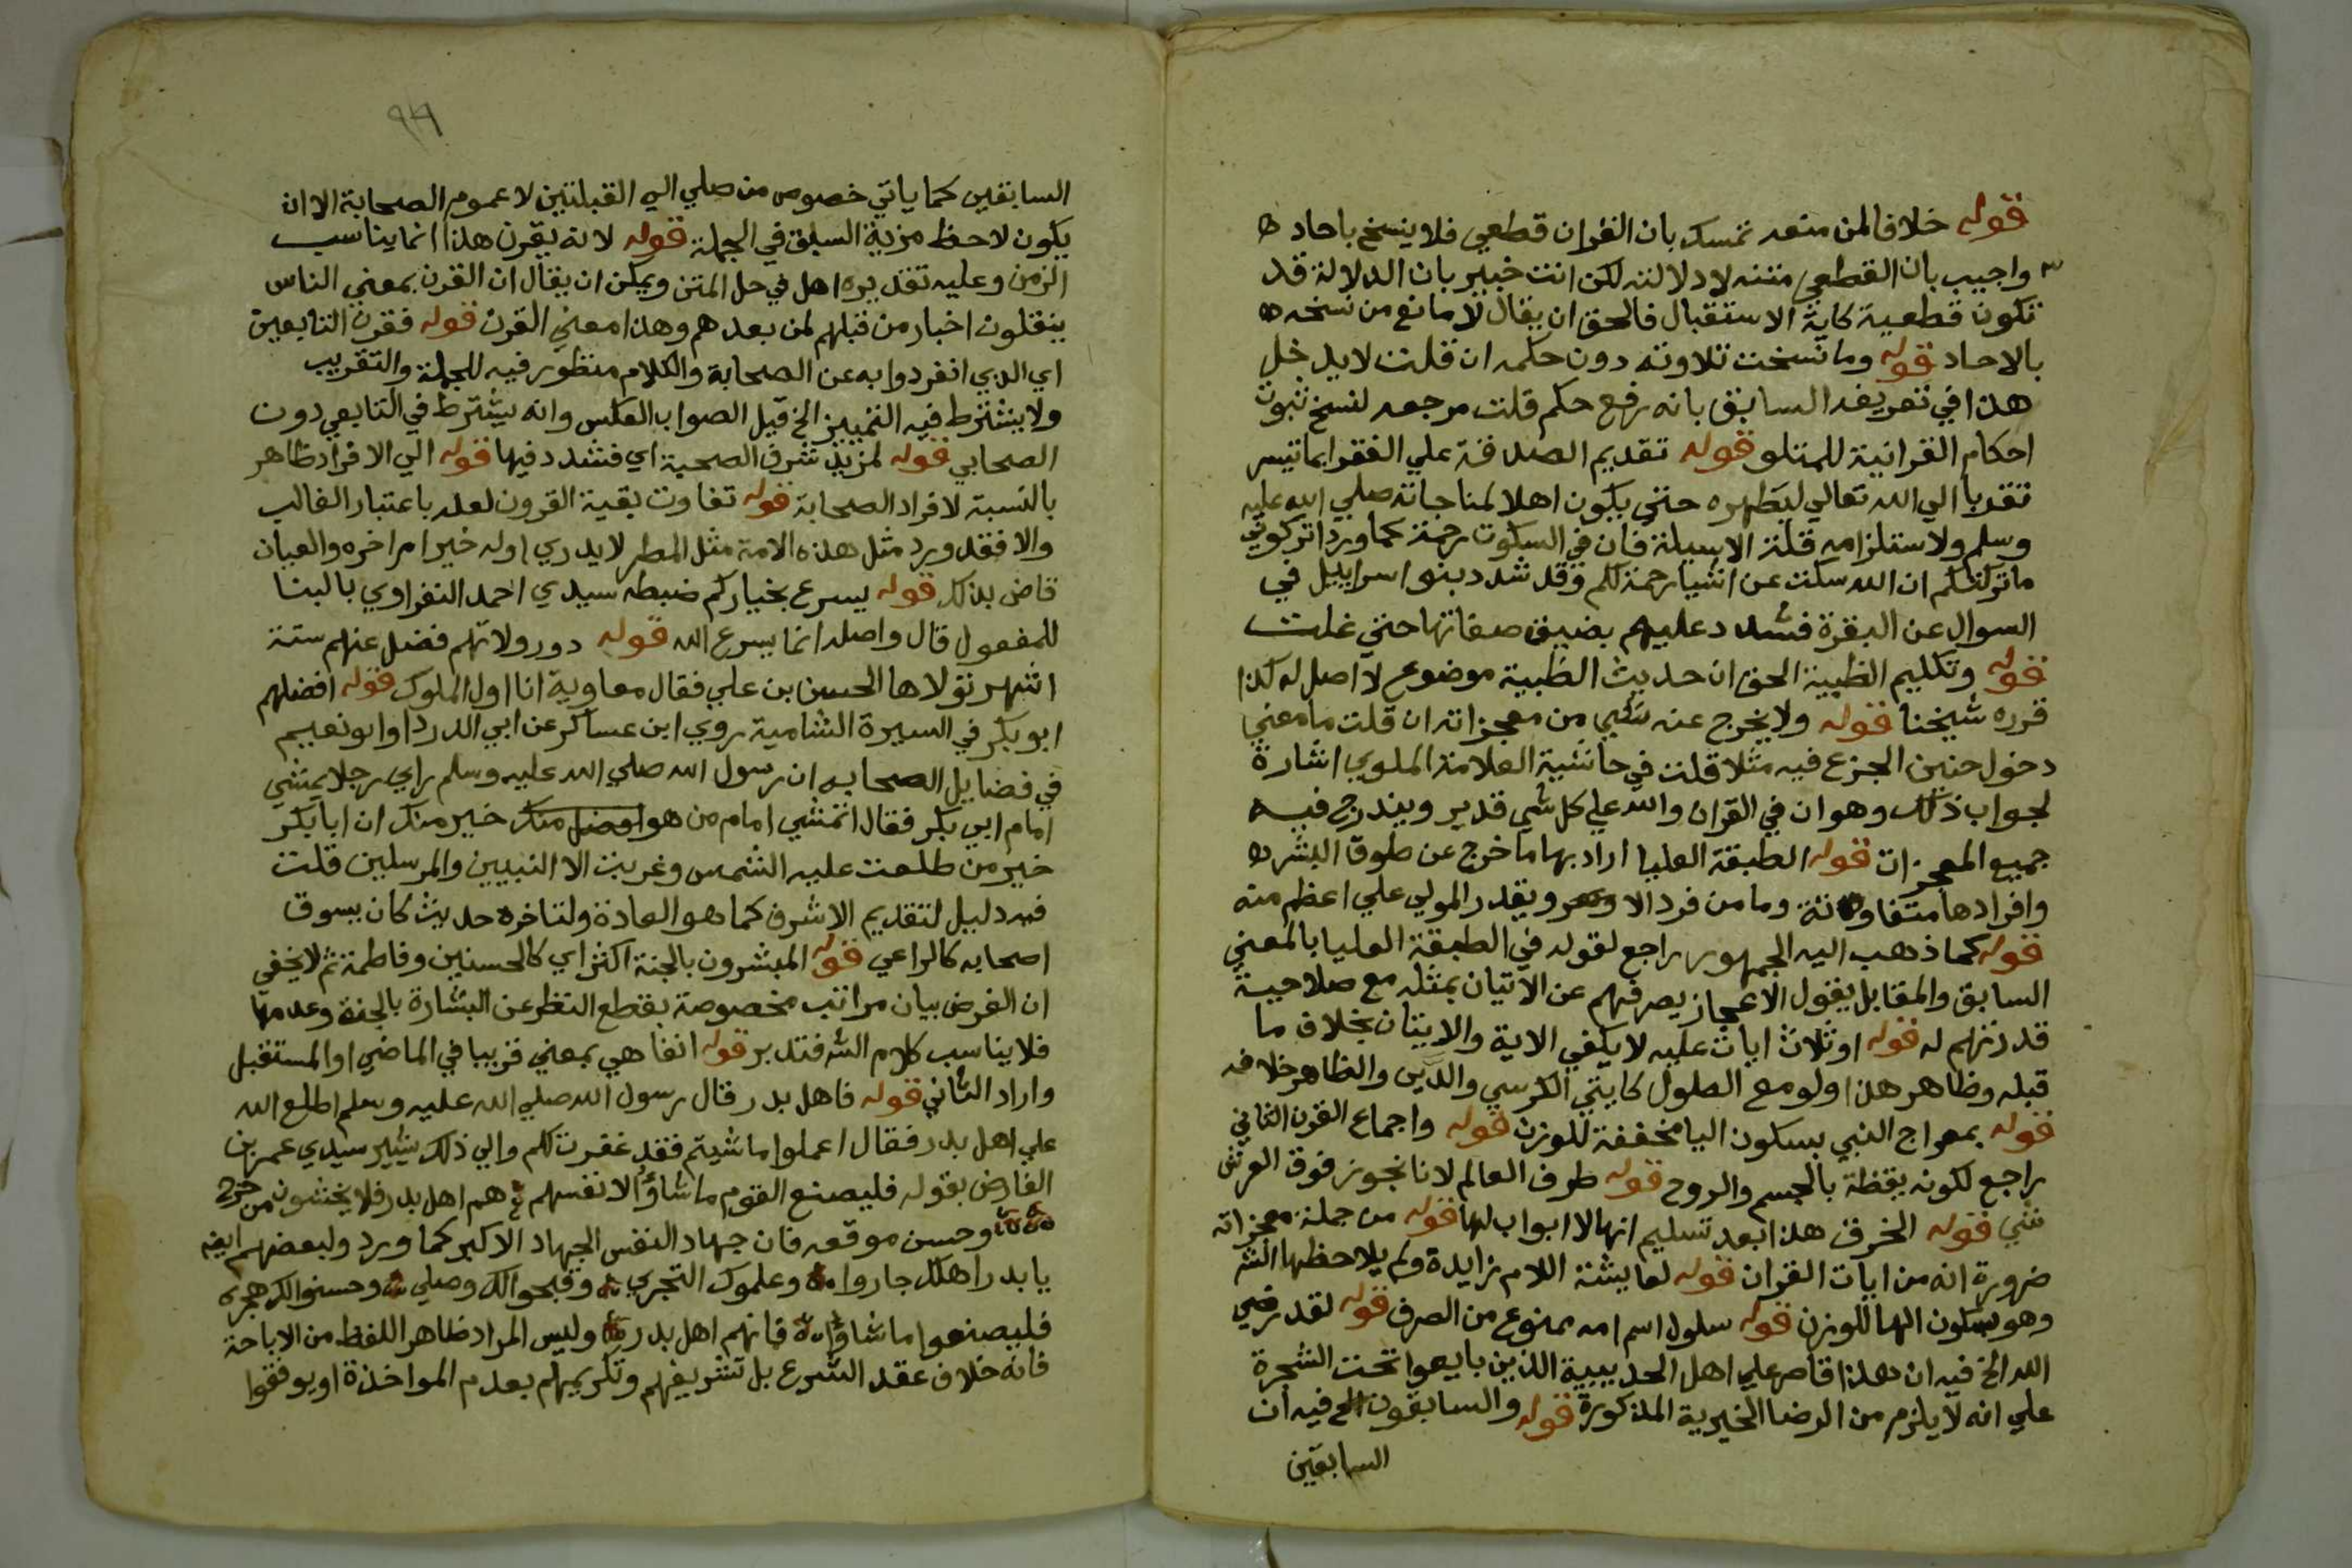 قوله خلافا لمن منعه تمسك بان القران قطعي فلا ينسخ باحاد
واجيب بان القطعي متنه لا دلالته لكن انت خبير بان الدلالة قد
تكون قطعية كاية الاستقبال فالحق ان يقال لا مانع من نسخه
بالاحاد قوله وما نسخت تلاوته دون حكمه ان قلت لا يدخل
هذا في تعريف السابق بانه رفع حكم قلت مرجعه لنسخ ثبوت
احكام القرانية للمتلو قوله تقديم الصدقة علي الفقرا بما تيسر
تقربا الي الله تعالي ليطهره حتي يكون اهلا لمناجاته صلي الله عليه
وسلم ولاستلزامه قلة الاسيلة فان في السكوت رحمة كما ورد اتركوني
ما تركتكم ان الله سكت عن اشيا رحمة لكم وقد شدد بنوا اسراييل في
السوال عن البقرة فشدد عليهم بضيق صفاتها حتي غلت
قوله وتكليم الظبية الحق ان حديث الظبية موضوع لا اصل له كذا
قرره شيخنا قوله ولا يخرج عنه شي من معجزاته ان قلت ما معني
دخول حنين الجزع فيه مثلا قلت في حاشية العلامة الملوي اشارة
لجواب ذلك وهو ان في القران والله علي كل شي قدير ويندرج فيه
جميع المعجزات قوله الطبقة العليا اراد بها ما خرج عن طوق البشر
وافرادها متفاوتة وما من فرد الا ويقدر المولي علي اعظم منه
قوله كما ذهب اليه الجمهور راجع لقوله في الطبقة العليا بالمعني
السابق والمقابل يقول الاعجاز يصرفهم عن الاتيان بمثله مع صلاحية
قدرتهم له قوله او ثلاث ايات عليه لا يكفي الاية والايتان بخلاف ما
قبله وظاهر هذا ولو مع الطول كايتي الكرسي والدين والظاهر خلافه
قوله بمعراج النبي بسكون اليا مخففة للوزن قوله واجماع القرن الثاني
راجع لكونه يقظة بالجسم والروح قوله طرف العالم لانا نجوز فوق العرش
شي قوله الخرق هذا بعد تسليم انها لا ابواب لها قوله من جملة معجزاته
ضرورة انه من ايات القران قوله لعايشة اللام زايدة ولم يلاحظها الش
وهو بسكون الها للوزن قوله سلول اسم امه ممنوع من الصرف قوله لقد رضي
الله الخ فيه ان هذا قاصر علي اهل الحديبية الذين بايعوا تحت الشجرة
علي انه لا يلزم من الرضا الخيرية المذكورة قوله والسابقون الخ فيه ان
السابقين
٩٦
السابقين كما ياتي خصوص من صلي الي القبلتين لا عموم الصحابة الا ان
يكون لاحظ مزية السبق في الجملة قوله لانه يقرن هذا انما يناسب
الزمن وعليه تقديره اهل في حل المتن ويمكن ان يقال ان القرن بمعني الناس
ينقلون اخبار من قبلهم لمن بعدهم وهذا معني القرن قوله فقرن التابعين
اي الذي انفردوا به عن الصحابة والكلام منظور فيه للجملة والتقريب
ولا يشترط فيه التمييز الخ قيل الصواب العكس وانه يشترط في التابعي دون
الصحابي قوله لمزيد شرف الصحبة اي فشدد فيها قوله الي الافراد ظاهر
بالنسبة لافراد الصحابة قوله تفاوت بقية القرون لعله باعتبار الغالب
والا فقد ورد مثل هذه الامة مثل المطر لا يدري اوله خير ام اخره والعيان
قاض بذلك قوله يسرع بخياركم ضبطه سيدي احمد النفراوي بالبنا
للمفعول قال واصله انما يسرع الله قوله دور ولاتهم فضل عنهم ستة
اشهر تولاها الحسن بن علي فقال معاوية انا اول الملوك قوله افضلهم
ابو بكر في السيرة الشامية روي ابن عساكر عن ابي الدردا وابو نعيم
في فضايل الصحابه ان رسول الله صلي الله عليه وسلم راي رجلا يمشي
امام ابي بكر فقال اتمشي امام من هو افضل منك خير منك ان ابا بكر
خير من طلعت عليه الشمس وغربت الا النبيين والمرسلين قلت
فيه دليل لتقديم الاشرف كما هو العادة ولتاخره حديث كان يسوق
اصحابه كالراعي قوله المبشرون بالجنة اكثر اي كالحسنين وفاطمة ثم لا يخفي
ان الغرض بيان مراتب مخصوصة بقطع النظر عن البشارة بالجنة وعدمها
فلا يناسب كلام الش فتدبر قوله انفا هي بمعني قريبا في الماضي او المستقبل
واراد الثاني قوله فاهل بدر قال رسول الله صلي الله عليه وسلم اطلع الله
علي اهل بدر فقال اعملوا ما شيتم فقد غفرت لكم والي ذلك يشير سيدي عمر بن
الفارض بقوله فليصنع القوم ما شاؤا لانفسهم هم اهل بدر فلا يخشون من حرج
وحسن موقعه فان جهاد النفس الجهاد الاكبر كما ورد ولبعضهم ايضه
يا بدر اهلك جاروا وعلموك التجري وقبحوا لك وصلي وحسنوا لك هجره
فليصنعوا ما شاؤا فانهم اهل بدر وليس المراد ظاهر اللفظ من الاباحة
فانه خلاف عقد الشرع بل تشريفهم وتكريمهم بعدم المواخذة او يوفقوا